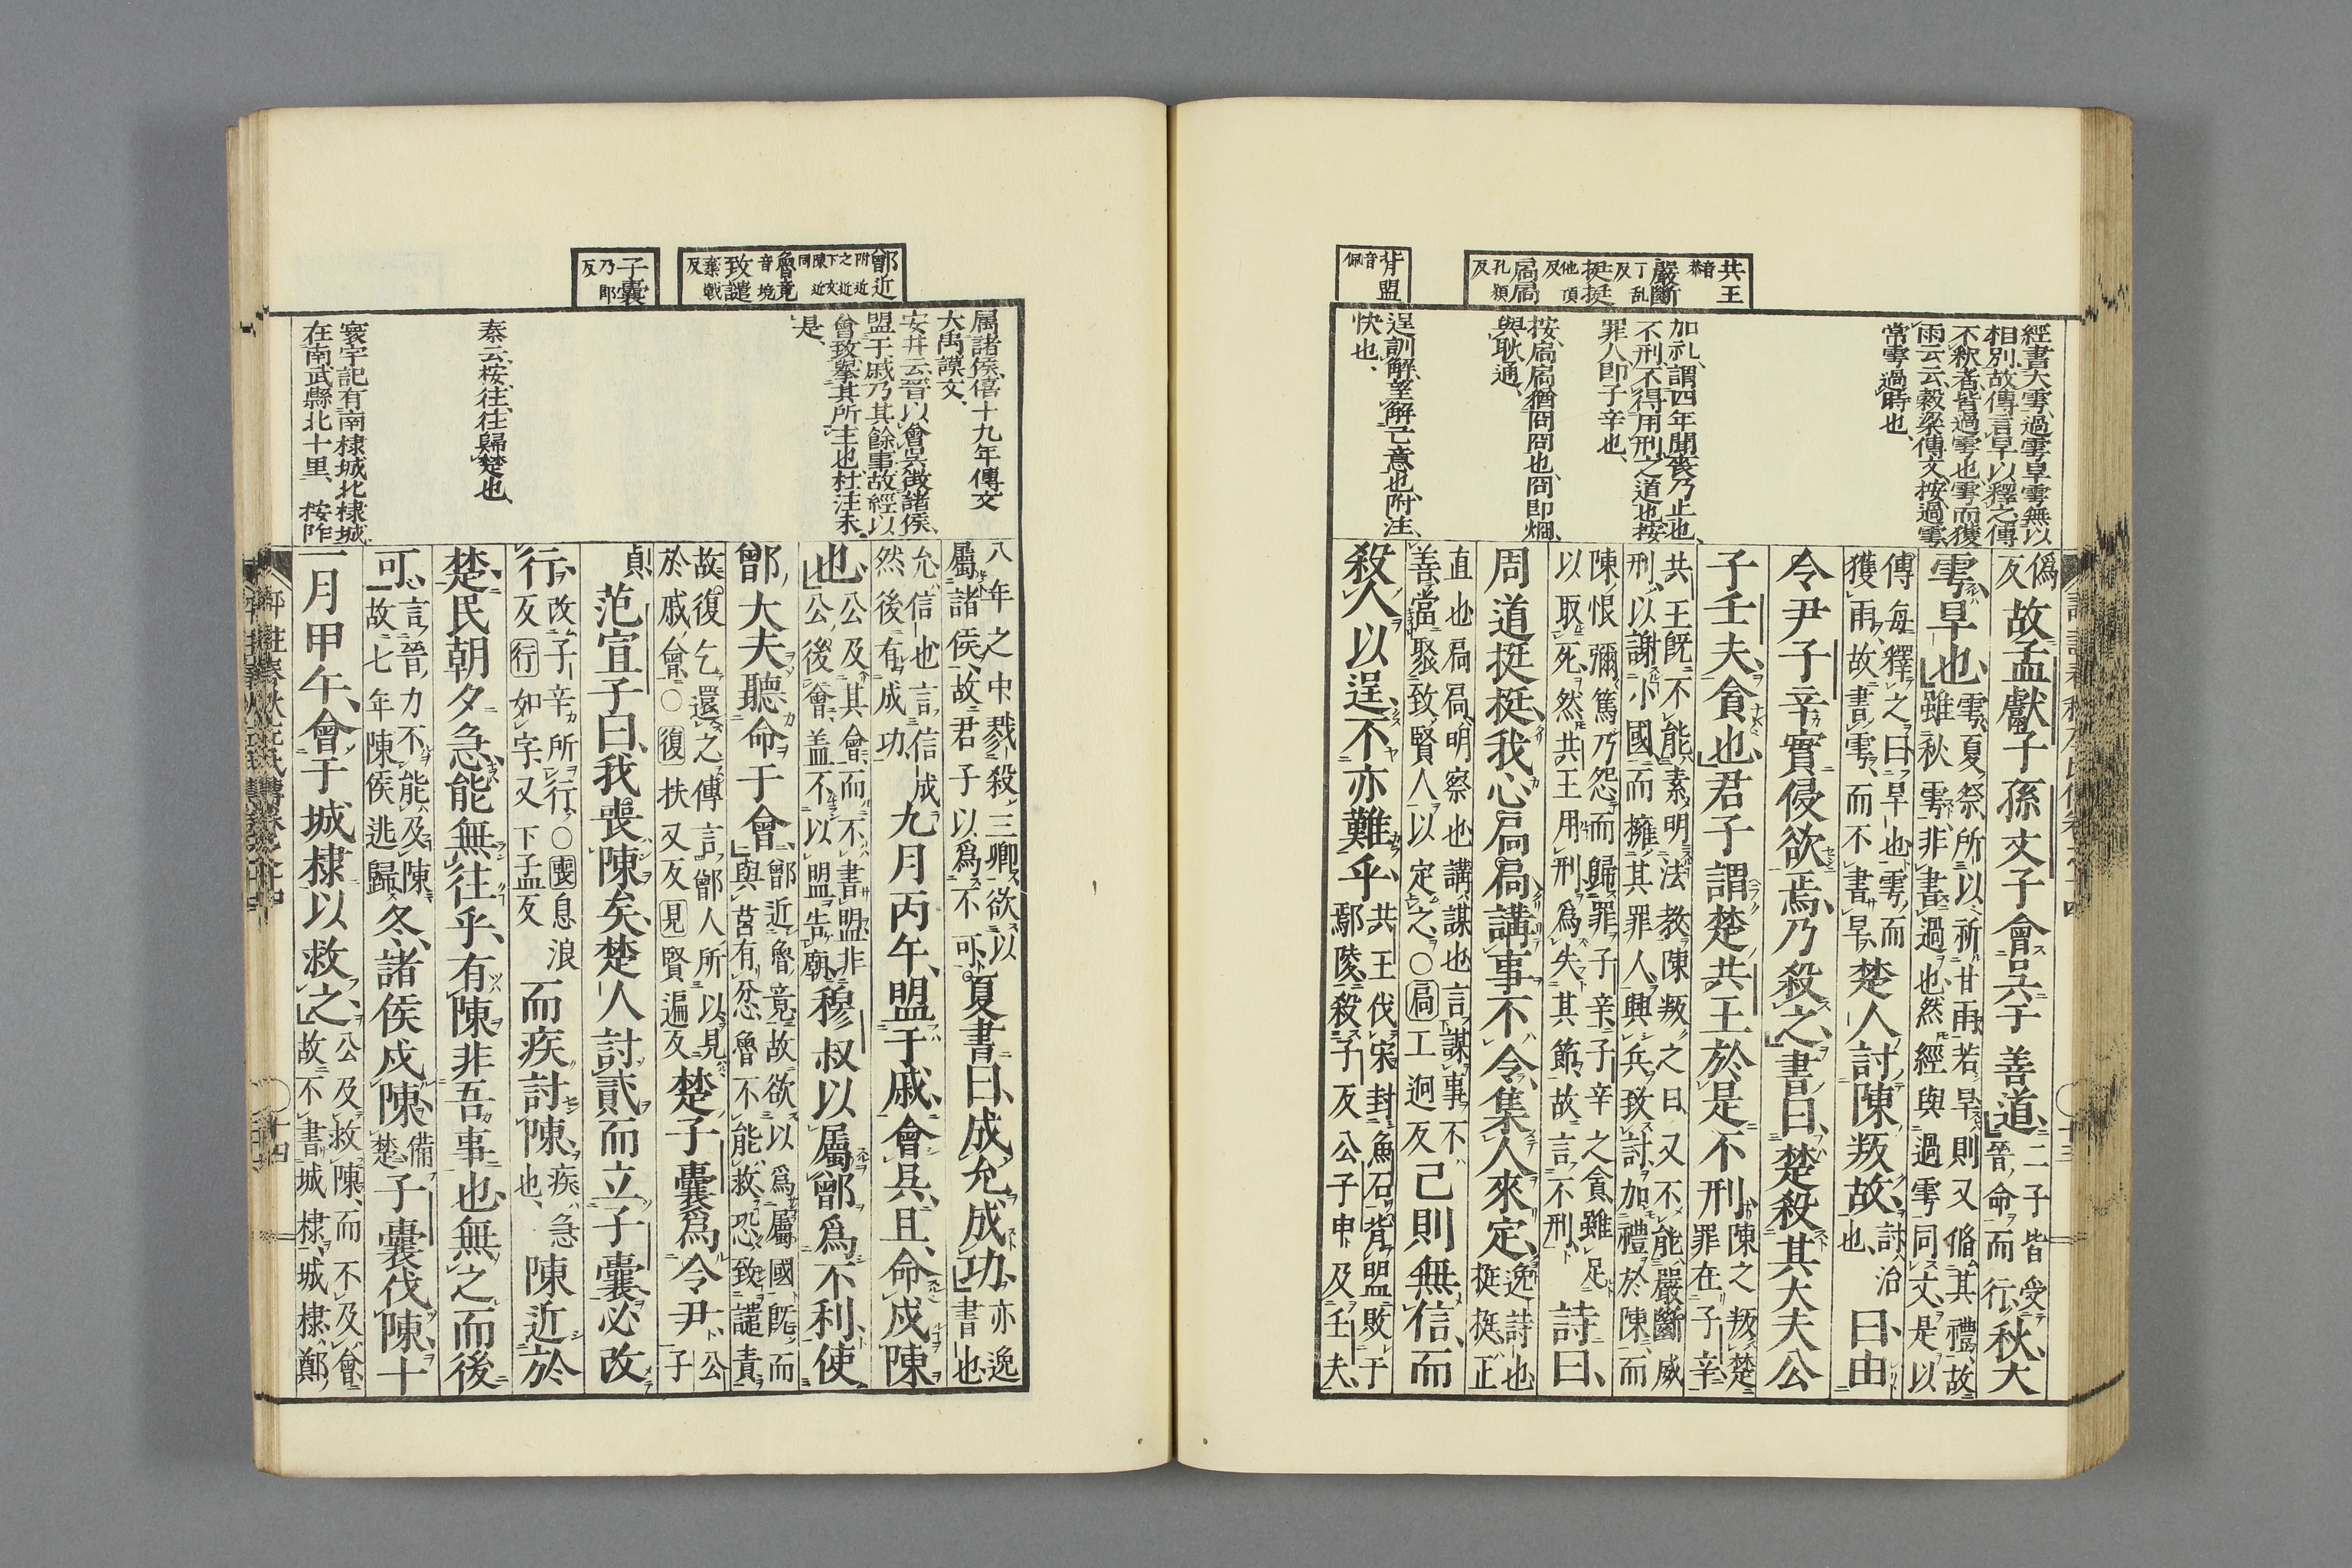 共王 音恭
嚴斷 丁乱反
挺挺 他頂反
扃扃 孔頴反
背盟 音佩
經書大雩過雩旱雩無以
相別故傳言旱以釋之傳
不釋者皆過雩也雩而獲
雨云云穀梁傳文按過雩
常雩過時也
加礼謂四年聞喪乃止也
不刑不得用刑之道也按
罪人即子辛也
按扃扃猶冏冏也冏即烱
與耿通
逞訓解望解己意也附注
快也
偽反故孟獻子孫文子會吳于善道二子皆受晉命而行秋大
雩旱也雩夏祭所以祈甘雨若旱則又脩其禮故雖秋雩非書過也然經與過雩同文是以
傳每釋之曰旱也雩而獲雨故書雩而不書旱楚人討陳叛故討治也曰由
令尹子辛實侵欲焉乃殺之書曰楚殺其大夫公
子壬夫貪也君子謂楚共王於是不刑陳之叛楚罪在子辛
共王旣不能素明法教陳叛之日又不能嚴斷威刑以謝小國而擁其罪人興兵致討加禮於陳而
陳恨彌篤乃怨而歸罪子辛子辛之貪雖足以取死然共王用刑爲失其節故言不刑詩曰
周道挺挺我心扃扃講事不令集人來定逸詩也挺挺正
直也扃扃明察也講謀也言謀事不善當聚致賢人以定之○扃工迥反己則無信而
殺人以逞不亦難乎共王伐宋封魚石背盟敗于鄢陵殺子反公子申及壬夫
鄫近 附近之近下陳近同
魯竟 音境
致譴 棄戰反
子囊 乃郎反
属諸侯僖十九年傳文
大禹謨文
安井云晉以會吳徴諸侯
盟于戚乃其餘事故經以
會致擧其所主也杜注未
是
秦云按往往歸楚也
寰宇記有南棣城北棣城
在南武縣北十里 按阼
八年之中戮殺三卿欲以屬諸侯故君子以爲不可夏書曰成允成功亦逸書也
允信也言信成然後有成功九月丙午盟于戚會吳且命戍陳
也公及其會而不書盟非公後會盖不以盟告廟穆叔以屬鄫爲不利使
鄫大夫聽命于會鄫近魯竟故欲以爲屬國旣而與莒有忿魯不能救恐致譴責
故復乞還之傳言鄫人所以見於戚會○復扶又反見賢遍反楚子囊爲令尹公子
貞范宣子曰我喪陳矣楚人討貳而立子囊必改
行改子辛所行○行如字又下孟反息浪反而疾討陳疾急也陳近於
楚民朝夕急能無往乎有陳非吾事也無之而後
可言晉力不能及陳故七年陳侯逃歸冬諸侯戍陳備楚子囊伐陳十
一月甲午會于城棣以救之公及救陳而不及會故不書城棣城棣鄭